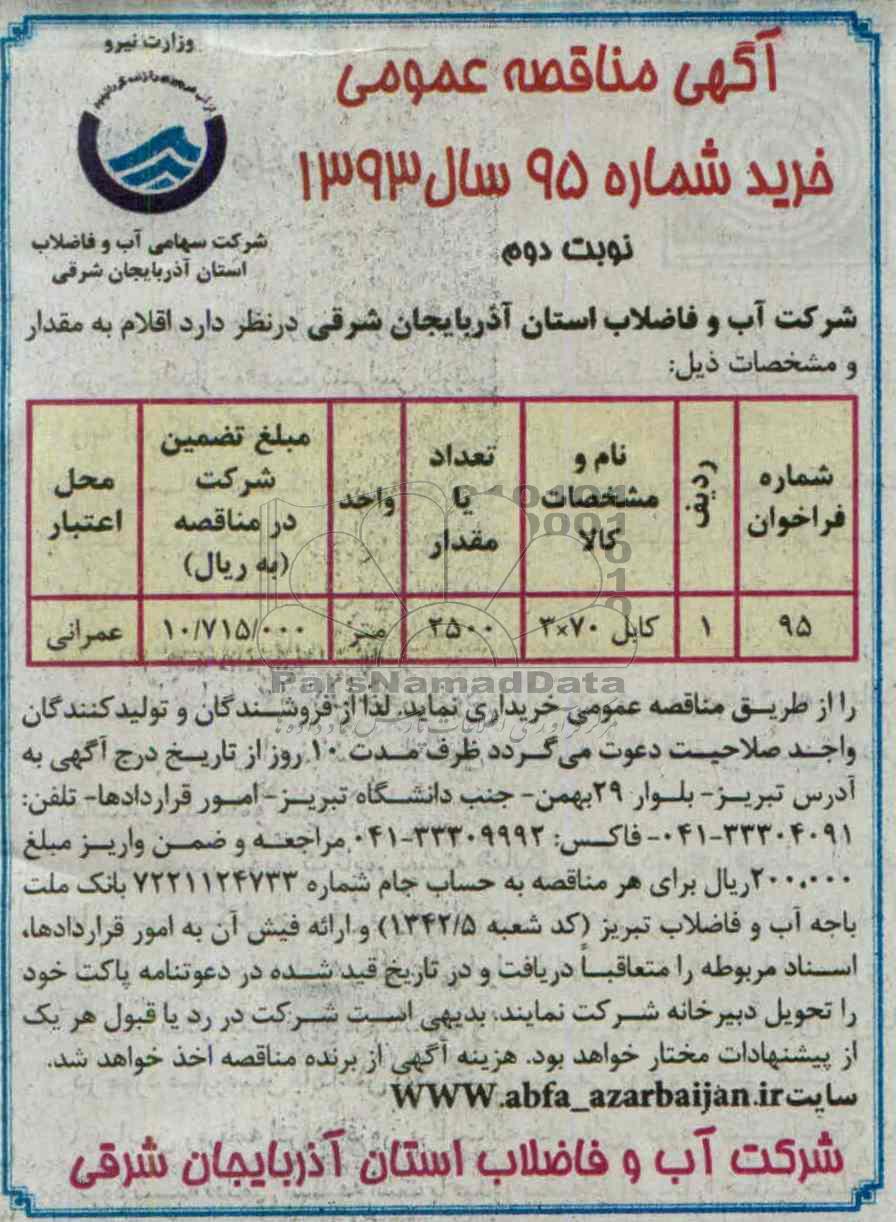 وزارت نیرو
آگهی مناقصه عمومی
خرید شماره ۹۵ سال ۱۳۹۳
نوبت دوم
شرکت سهامی آب و فاضلاب
استان آذربایجان شرقی
شرکت آب و فاضلاب استان آذربایجان شرقی درنظر دارد اقلام به مقدار
و مشخصات ذیل:
شماره فراخوان ردیف نام و مشخصات کالا تعداد یا مقدار واحد مبلغ تضمین شرکت در مناقصه (به ریال) محل اعتبار
۹۵ ۱ کابل ۷۰×۳ ۲۵۰۰ متر ۱۰/۷۱۵/۰۰۰ عمرانی
ParsNamadData
را از طریـق مناقصه عمومی خریداری نماید. لذا از فروشـندگان و تولیدکنندگان
واجـد صلاحیـت دعوت می گـردد ظرف مـدت ۱۰ روز از تاریـخ درج آگهی به
آدرس تبریـز- بلـوار ۲۹بهمن- جنب دانشـگاه تبریـز- امـور قراردادها- تلفن:
۰۴۱-۳۳۳۰۴۰۹۱- فاکـس: ۰۴۱-۳۳۳۰۹۹۹۲ مراجعـه و ضمـن واریـز مبلغ
۲۰۰،۰۰۰ریال برای هر مناقصه به حساب جام شماره ۷۲۲۱۱۲۴۷۳۳ بانک ملت
باجه آب و فاضلاب تبریز (کد شعبه ۱۳۴۲/۵) و ارائه فیش آن به امور قراردادها،
اسـناد مربوطه را متعاقبـاً دریافت و در تاریخ قید شـده در دعوتنامه پاکت خود
را تحویل دبیرخانه شـرکت نمایند. بدیهی اسـت شـرکت در رد یا قبول هر یک
از پیشنهادات مختار خواهد بود. هزینه آگهی از برنده مناقصه اخذ خواهد شد.
سایت WWW.abfa_azarbaijan.ir
شرکت آب و فاضلاب استان آذربایجان شرقی